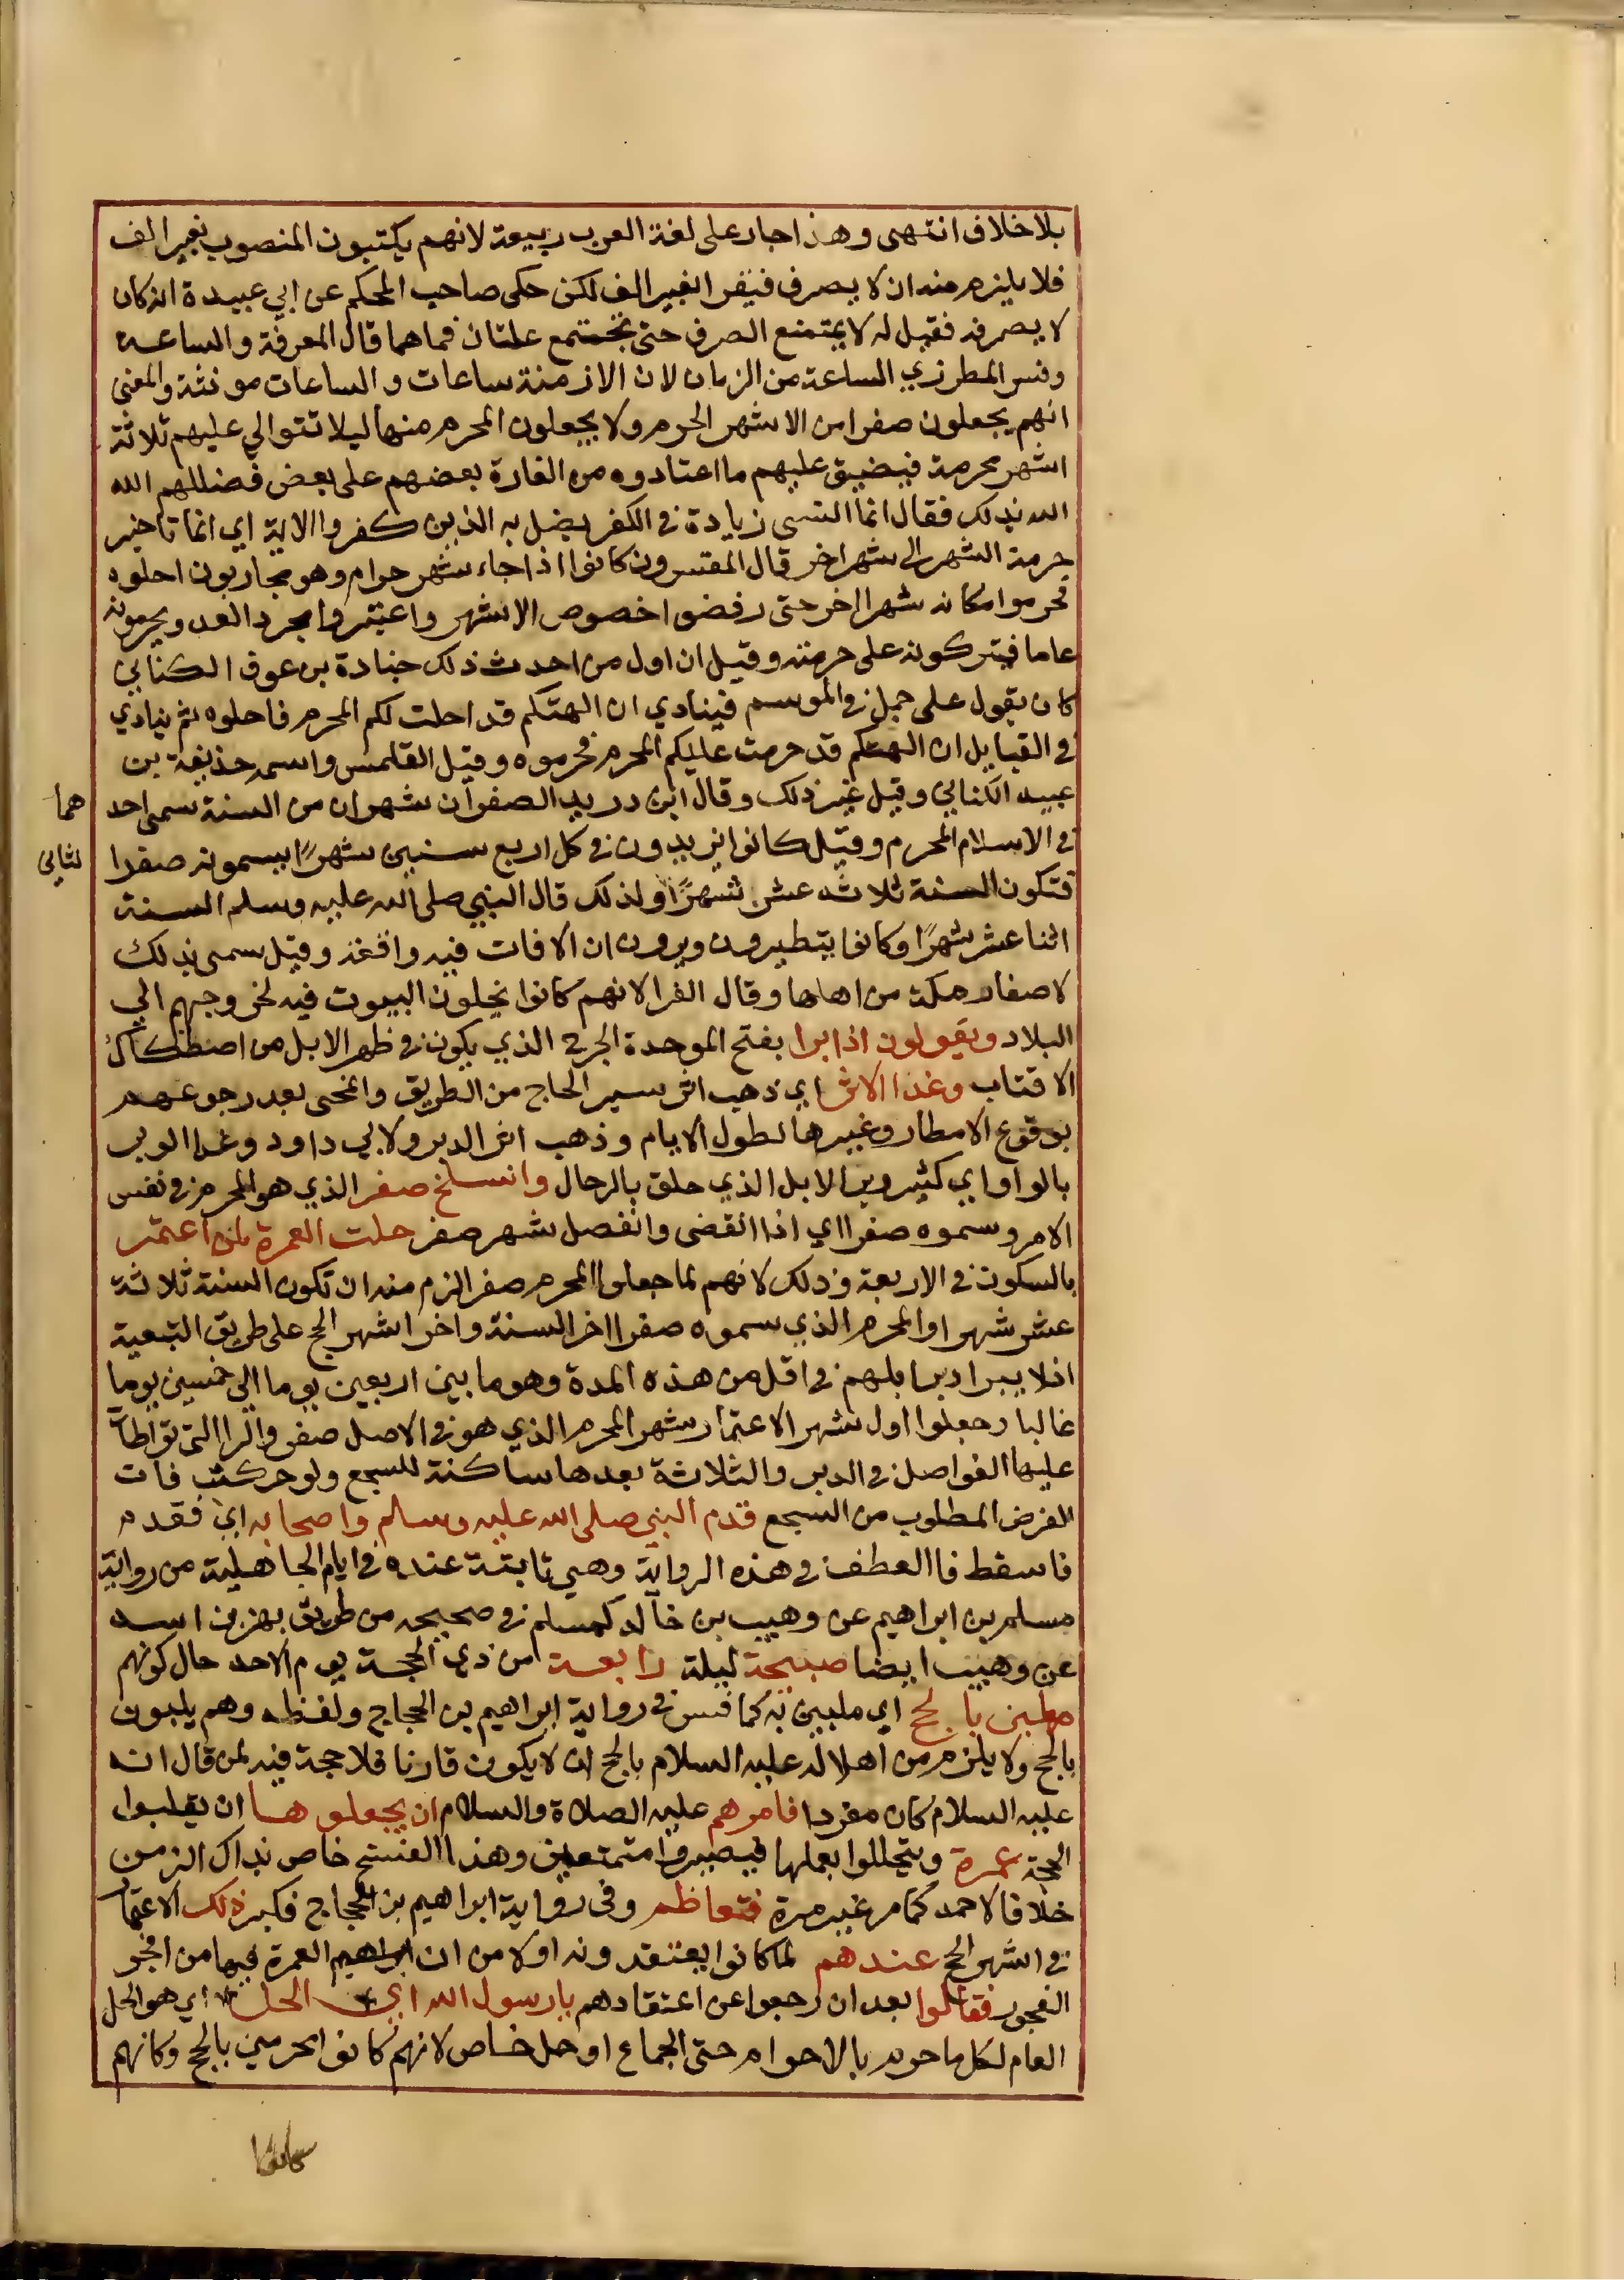 بلا خلاف انتهى وهذا جار على لغة العرب ربيعة لانهم يكتبون المنصوب بغير الف
فلا يلزم منه ان لا يصرف فيقرا بغير الف لكن حكى صاحب المحكم عن ابي عبيدة انه كان
لا يصرفه فقيل له لا يمتنع الصرف حتى تجتمع علتان فما هما قال المعرفة والساعة
وفسر المطرزي الساعة من الزمان لان الازمنة ساعات والساعات مونثة والمعنى
انهم يجعلون صفرا من الاشهر الحرم ولا يجعلون المحرم منها ليلا تتوالي عليهم ثلاثة
اشهر محرمة فيضيق عليهم ما اعتادوه من الغارة بعضهم على بعض فضللهم الله
الله بذلك فقال انما النسى زيادة في الكفر يضل به الذين كفروا الاية اي انما تاخير
حرمة الشهر الى شهر اخر قال المفسرون كانوا اذا جاء شهر حرام وهو محاربون احلوه
فحرموا مكانه شهرا اخر حتى رفضوا خصوص الاشهر واعتبروا مجرد العدد ويحرمونه
عاما فيتركونه على حرمته وقيل ان اول من احدث ذلك جنادة بن عوف الكناني
كان يقول على جمل في الموسم فينادي ان الهتكم قد احلت لكم المحرم فاحلوه ثم ينادي
في القبايل ان الهتكم قد حرمت عليكم المحرم فحرموه وقيل القلمس واسمه حذيفة بن
عبيد الكناني وقيل غير ذلك وقال ابن دريد الصفران شهران من السنة سمى احد هما
في الاسلام المحرم وقيل كانوا يزيدون في كل اربع سنين شهرًا يسمونه صفرا لثاني
فتكون السنة ثلاثة عشر شهرًا ولذلك قال النبي صلى الله عليه وسلم السنة
اثنا عشر شهرًا وكانوا يتطيرون ويرون ان الافات فيه واقعة وقيل سمى بذلك
لاصفار مكة من اهلها وقال الفرا لانهم كانوا يخلون البيوت فيه لخروجهم الي
البلاد ويقولون اذا برا بفتح الموحدة الجرح الذي يكون في ظهر الابل من اصطكاك
الاقتاب وعفا الاثر اي ذهب اثر سير الحاج من الطريق وانمحى بعد رجوعهم
بوقوع الامطار وغيرها لطول الايام وذهب اثر الدبر ولابي داود وعفا الوبر
بالواو اي كثير وبر الابل الذي حلق بالرحال وانسلخ صفر الذي هو المحرم في نفس
الامر وسموه صفرا اي اذا انقضى وانفصل شهر صفر حلت العمرة لمن اعتمر
بالسكون في الاربعة وذلك لانهم لما جعلوا المحرم صفر الزم منه ان تكون السنة ثلاثة
عشر شهرا والمحرم الذي سموه صفرا اخر السنة واخر اشهر الحج على طريق التبعية
اذ لا يبرا دبر ابلهم في اقل من هذه المدة وهو ما بين اربعين يوما الي خمسين يوما
غالبا وجعلوا اول شهر الاعتمار شهر المحرم الذي هو في الاصل صفر والرا التي تواطأت
عليها الفواصل في الدبر والثلاثة بعدها ساكنة للسجع ولو حركت فات
الغرض المطلوب من السجع قدم النبي صلى الله عليه وسلم واصحابه اي فقدم
فاسقط فا العطف في هذه الرواية وهي ثابتة عنده في ايام الجاهلية من رواية
مسلم بن ابراهيم عن وهيب بن خالد كمسلم في صحيحه من طريق بهز بن اسد
عن وهيب ايضا صبيحة ليلة رابعة من ذي الحجة يوم الاحد حال كونهم
مهلين بالحج اي ملبين به كما فسر في رواية ابراهيم بن الحجاج ولفظه وهم يلبون
بالحج ولا يلزم من اهلاله عليه السلام بالحج ان لا يكون قارنا فلا حجة فيه لمن قال انه
عليه السلام كان مفردا فامرهم عليه الصلاة والسلام ان يجعلوها ان يقلبوا
الحجة عمرة ويتحللوا بعملها فيصيروا متمتعين وهذا الفسخ خاص بذاك الزمن
خلافا لاحمد كما مر غير مرة فتعاظم وفي رواية ابراهيم بن الحجاج فكبر ذلك الاعتمار
في اشهر الحج عندهم لما كانوا يعتقدونه اولا من ان العمرة فيها من افجر
الفجور فقالوا بعد ان رجعوا عن اعتقادهم يا رسول الله اي الحل اي هو الحل
العام لكل ما حرم بالاحرام حتى الجماع او حل خاص لانهم كانوا محرمين بالحج وكانهم
كانوا